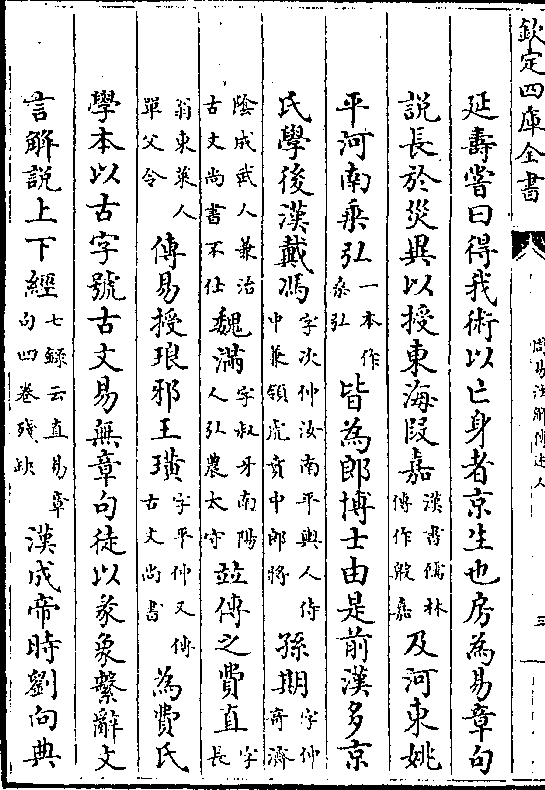 欽定四庫全書
周易注解傳述人
三
延壽嘗曰得我術以亡身者京生也房為易章句
説長於災異以授東海段嘉漢書儒林傳作殷嘉及河東姚
平河南乗弘一本作桑弘皆為郎博士由是前漢多京
氏學後漢戴馮字次仲汝南平輿人侍中兼領虎賁中郎將孫期字仲奇濟
陰成武人兼治古文尚書不仕魏滿字叔牙南陽人弘農太守竝傳之費直字長
翁東萊人單父令傳易授琅邪王璜字平仲又傳古文尚書為費氏
學本以古字號古文易無章句徒以彖象繫辭文
言解説上下經七錄云直易章句四卷殘缺漢成帝時劉向典